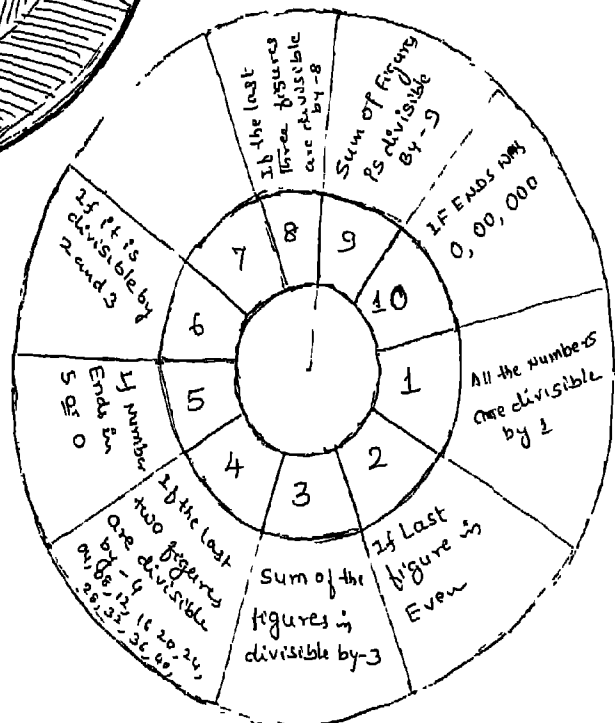 1
All the numbers
are divisible
by 1
2
If Last
figure is
Even
3
Sum of the
figures is
divisible by-3
4
If the last
two figures
are divisible
by-4
04, 08, 12, 16 20, 24,
28, 32, 36, 40,
5
If number
Ends in
5 or 0
6
If it is
divisible by
2 and 3
7
8
If the last
Three figures
are divisible
by-8
9
Sum of Figures
is divisible
By-9
10
IF ENDS
0, 00, 000